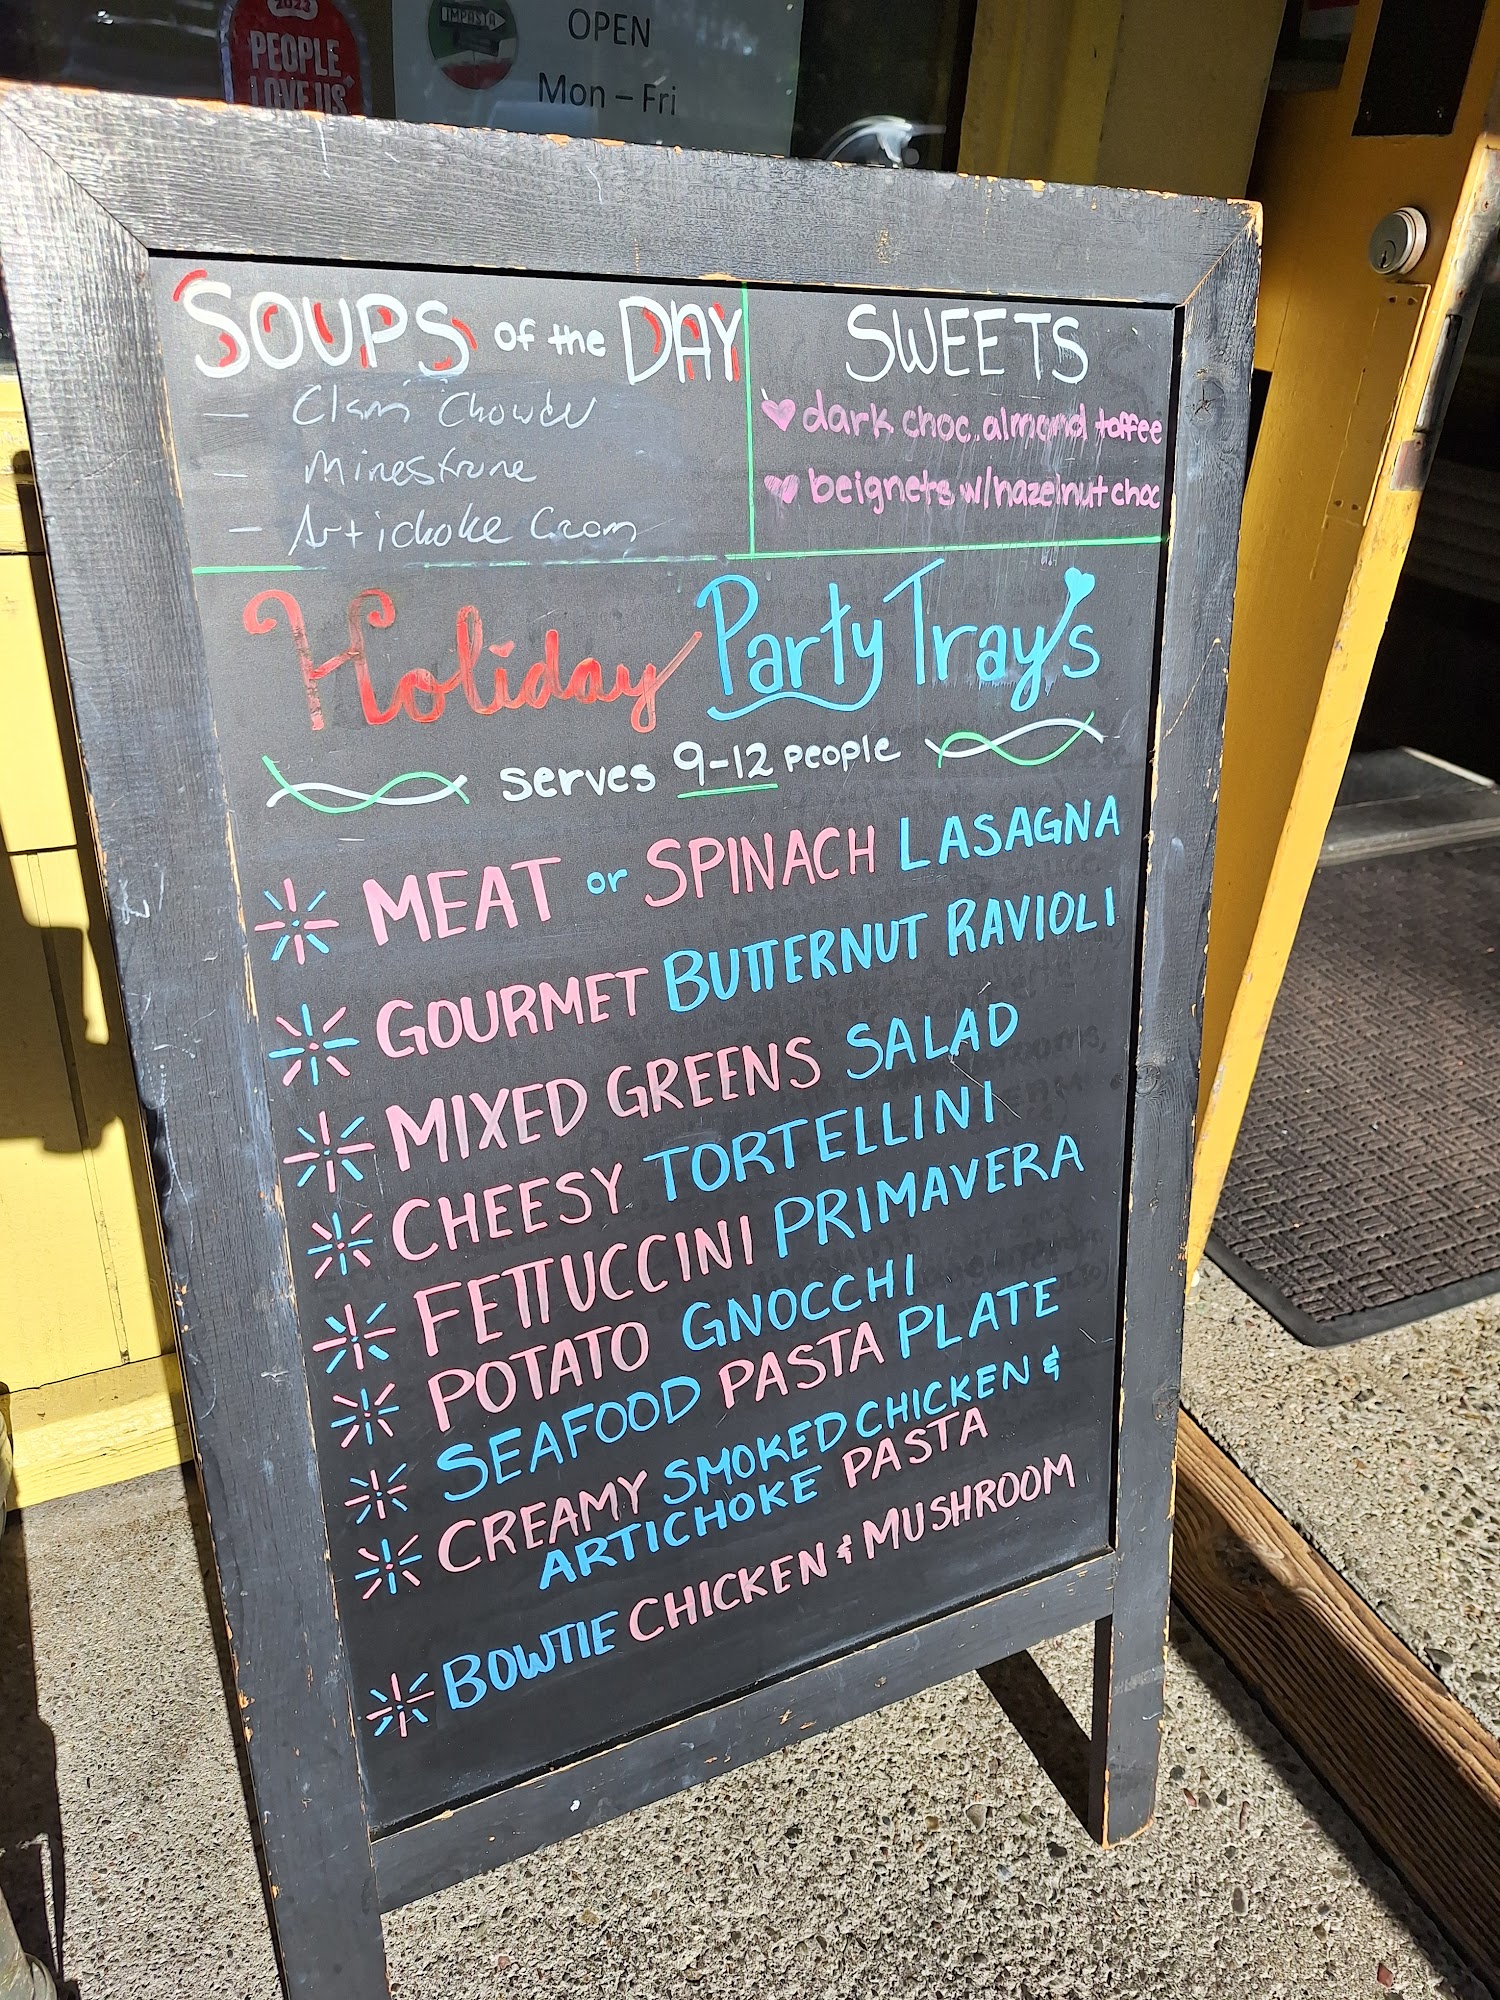 2023
PEOPLE
LOVE US
IMPASTA
OPEN
Mon – Fri
SOUPS of the DAY
– Clam Chowder
– Minestrone
– Artichoke Cream
SWEETS
dark choc. almond toffee
beignets w/hazelnut choc
Holiday Party Tray's
serves 9-12 people
MEAT or SPINACH LASAGNA
GOURMET BUTTERNUT RAVIOLI
MIXED GREENS SALAD
CHEESY TORTELLINI
FETTUCCINI PRIMAVERA
POTATO GNOCCHI
SEAFOOD PASTA PLATE
CREAMY SMOKED CHICKEN &
ARTICHOKE PASTA
BOWTIE CHICKEN & MUSHROOM